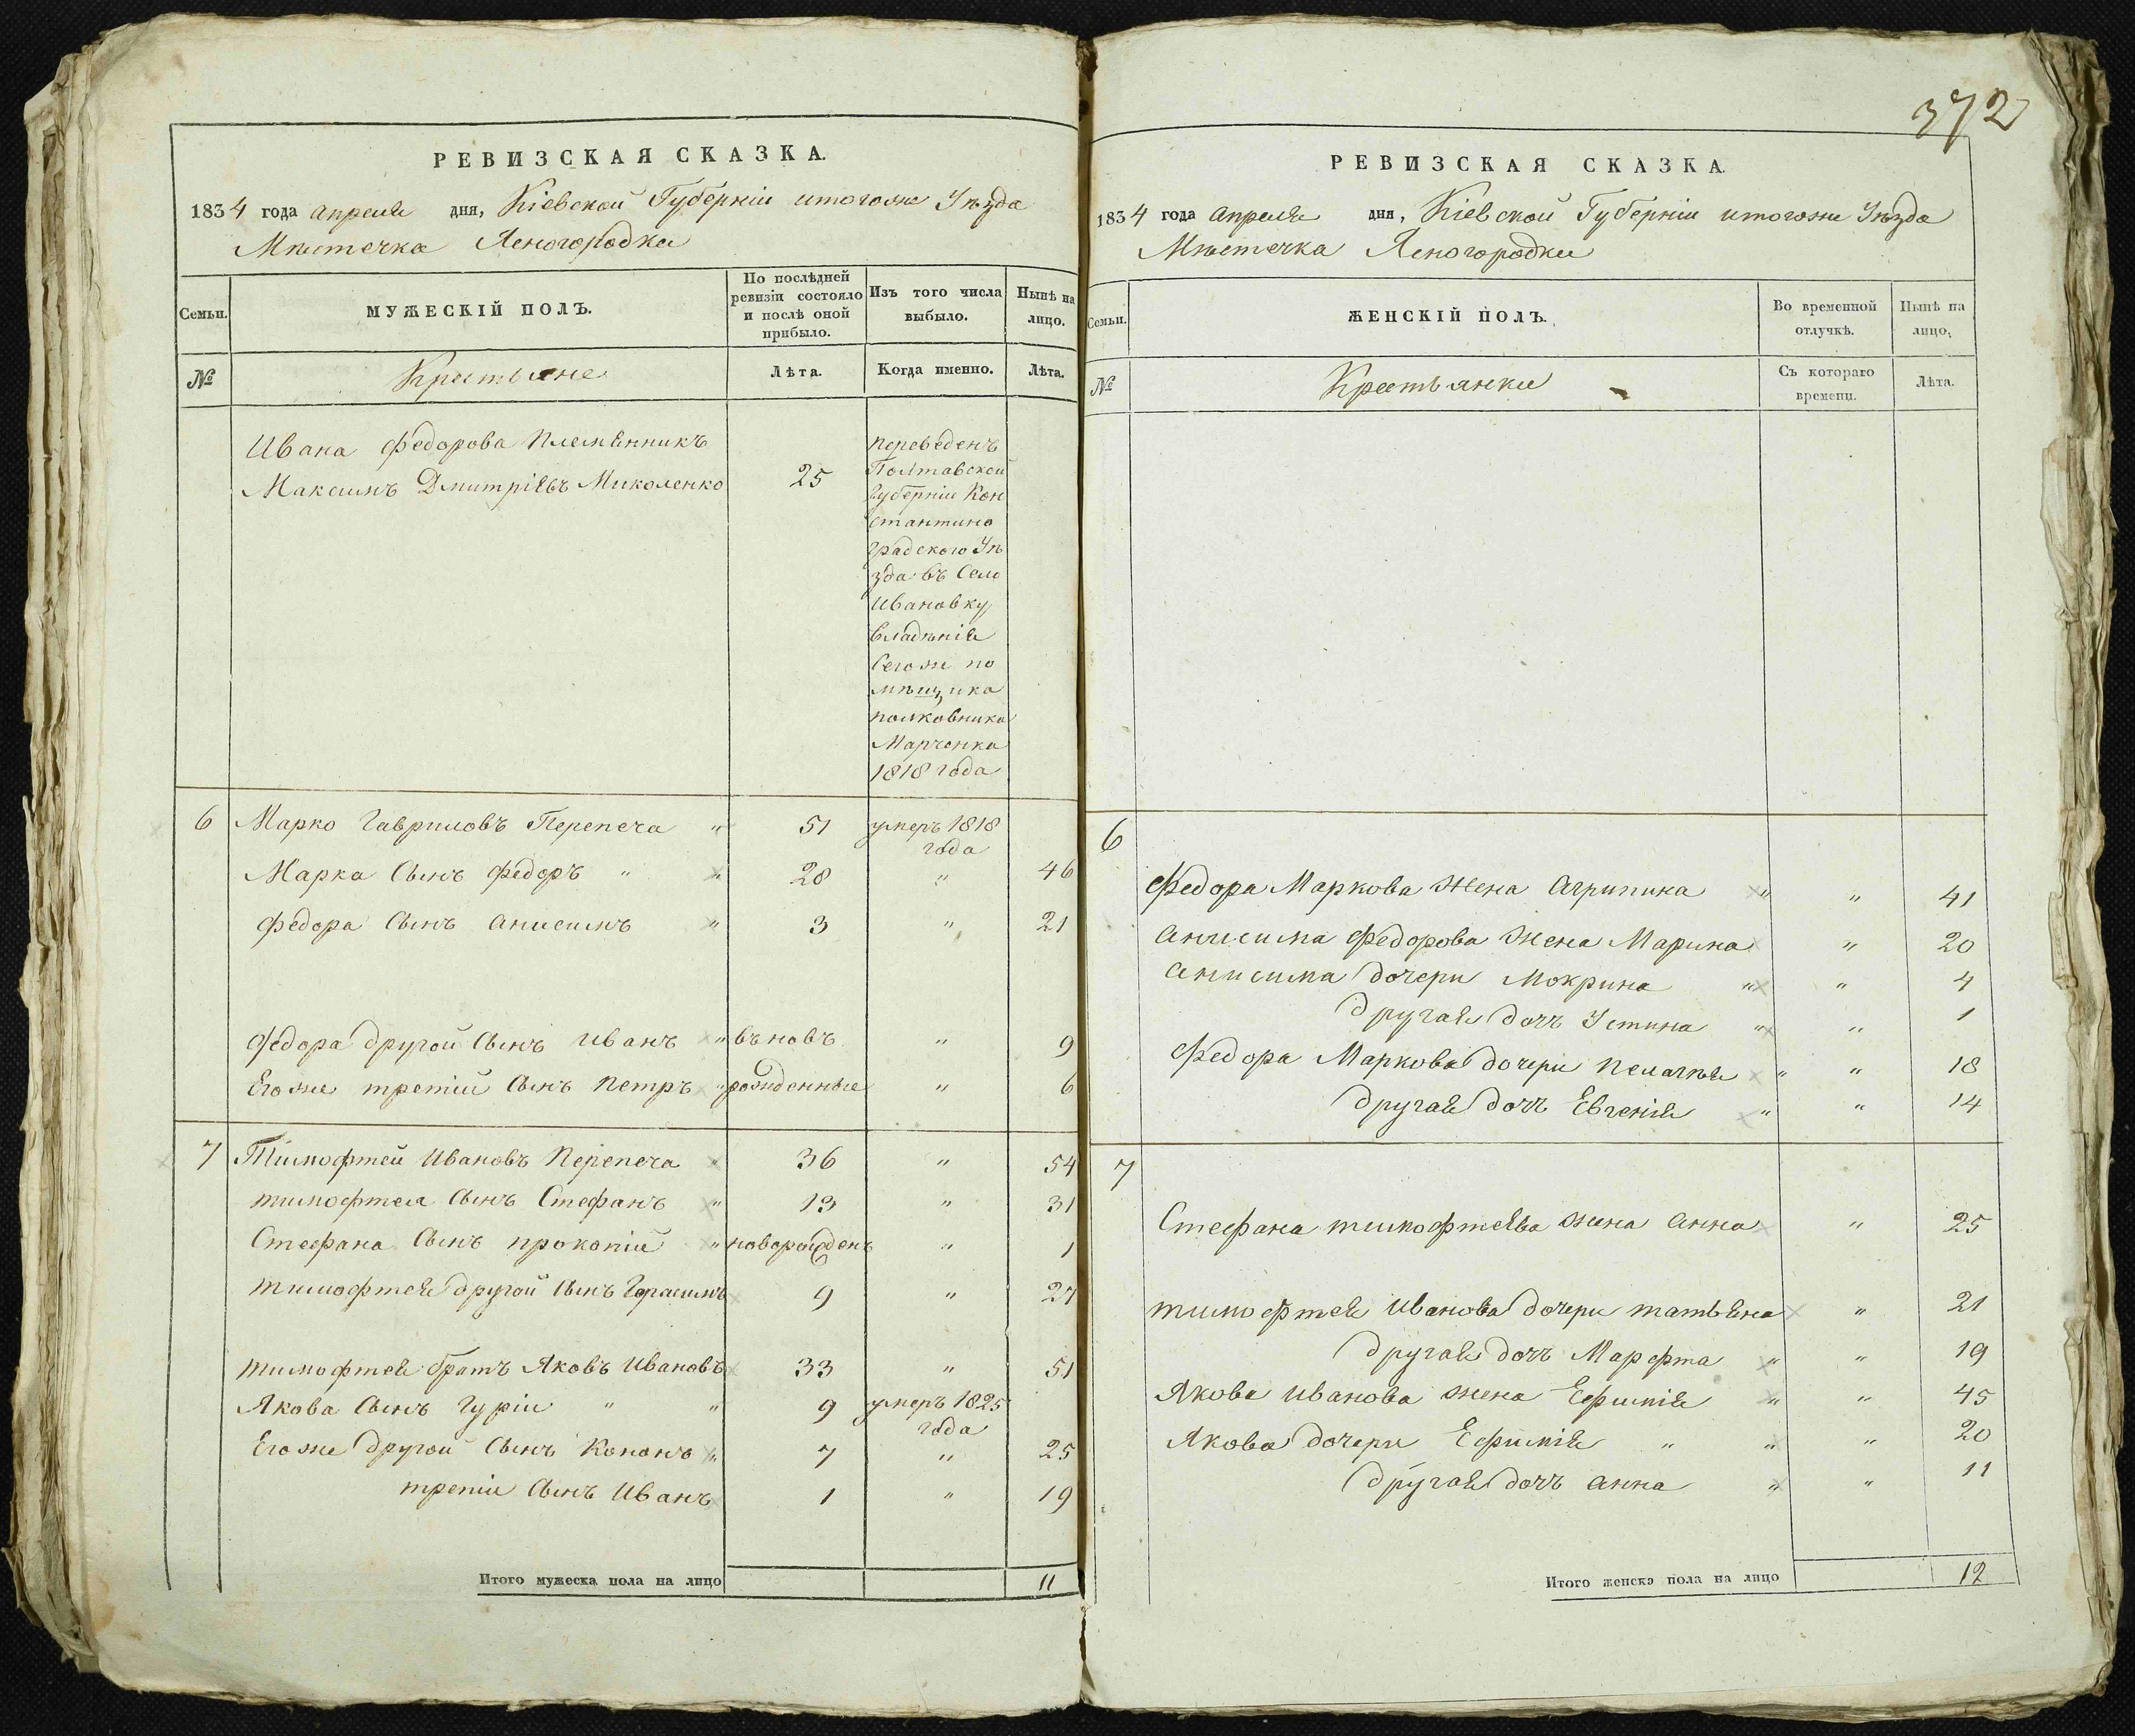 РЕВИЗСКАЯ СКАЗКА.
1834 года апреля дня, Кіевской Губерніи итогоже Уѣзда
Мѣстечка Ясногородки
Семьи.
МУЖЕСКІЙ ПОЛЪ.
По послѣдней ревизіи состояло и послѣ оной прибыло.
Изъ того числа выбыло.
Нынѣ на лицо.
№
Крестьяне
Лѣта.
Когда именно.
Лѣта.
Ивана Федорова племянникъ
Максимъ Дмитріевъ Миколенко 25
переведенъ
Полтавской
Губерніи Кон
стантино
градского Уѣ
зда въ Село
Ивановку
владѣнія
Сегоже по
мѣщика
полковника
Марченка
1818 года
6 Марко Гавриловъ Перепеча " 51 умеръ 1818 года
Марка Сынъ Федоръ " " 28 " 46
Федора Сынъ Анисимъ " 3 " 21
Федора другой Сынъ Иванъ " въновъ " 9
Егоже третій Сынъ Петръ " рожденные " 6
7 Тимофтей Ивановъ Перепеча " 36 " 54
тимофтея Сынъ Стефанъ " 13 " 31
Стефана Сынъ прокопій " новорожденъ " 1
тимофтея другой Сынъ Герасимъ 9 " 27
тимофтея братъ Яковъ Ивановъ 33 " 51
Якова Сынъ Гурій " " 9 умеръ 1825 года
Егоже другой Сынъ Кононъ " 7 " 25
третій Сынъ Иванъ 1 " 19
Итого мужеска пола на лицо 11
372
РЕВИЗСКАЯ СКАЗКА.
1834 года апреля дня, Кіевской Губерніи итогоже Уѣзда
Мѣстечка Ясногородки
Семьи.
ЖЕНСКІЙ ПОЛЪ.
Во временной отлучкѣ.
Нынѣ на лицо.
№
Крестьянки
Съ котораго времени.
Лѣта.
6
Федора Маркова жена Агрипина " " 41
Анисима Федорова жена Марина " 20
Анисима дочери Мокрина " " 4
другая дочъ Устина " " 1
Федора Маркова дочери Пелагѣя " " 18
другая дочъ Евгенія " " 14
7
Стефана тимофтеява жена Анна " 25
тимофтея Иванова дочери татьяна " 21
другая дочъ Марфта " " 19
Якова Иванова жена Ефимія " " 45
Якова дочери Ефимія " " " 20
другая дочъ анна " " 11
Итого женска пола на лицо 12